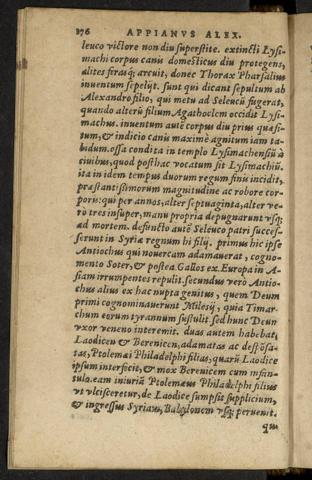 176 APPIANVS ALEX.
leuco victore non diu superstite. extincti Lysi-
machi corpus canis domesticus diu protegens,
alites firasq; arcuit, donec Thorax Pharsalius
inuentum sepelijt. sunt qui dicant sepultum ab
Alexandro filio, qui metu ad Seleucū fugerat,
quando alterū filium Agathoclem occidit Lysi-
machus. inuentum autē corpus diu prius quæsi-
tum, & indicio canis maximè agnitum iam ta-
bidum. ossa condita in templo Lysimachensiū à
ciuibus, quod posthac vocatum sit Lysimachiū.
ita in idem tempus duorum regum finis incidit,
præstantissimorum magnitudine ac robore cor-
poris: qui per annos, alter septuaginta, alter ve-
rò tres insuper, manu propria depugnarunt vsq;
ad mortem. defuncto autē Seleuco patri succes-
serunt in Syriæ regnum hi filij. primus hic ipse
Antiochus qui nouercam adamauerat, cogno-
mento Soter, & postea Gallos ex Europa in A-
siam irrumpentes repulit. secundus verò Antio-
chus alius ex hac nupta genitus, quem Deum
primi cognominauerunt Milesij, quia Timar-
chum eorum tyrannum sustulit sed hunc Deum
vxor veneno interemit. duas autem habebat,
Laodicen & Berenicen, adamatas ac despōsa-
tas, Ptolemæi Philadelphi filias, quarū Laodice
ipsum interficit, & mox Berenicem cum infan-
tulo. eam iniuriā Ptolemæus Philadelphi filius
vt vlcisceretur, de Laodice sumpsit supplicium,
& ingressus Syriam, Babylonem vsq; peruenit.